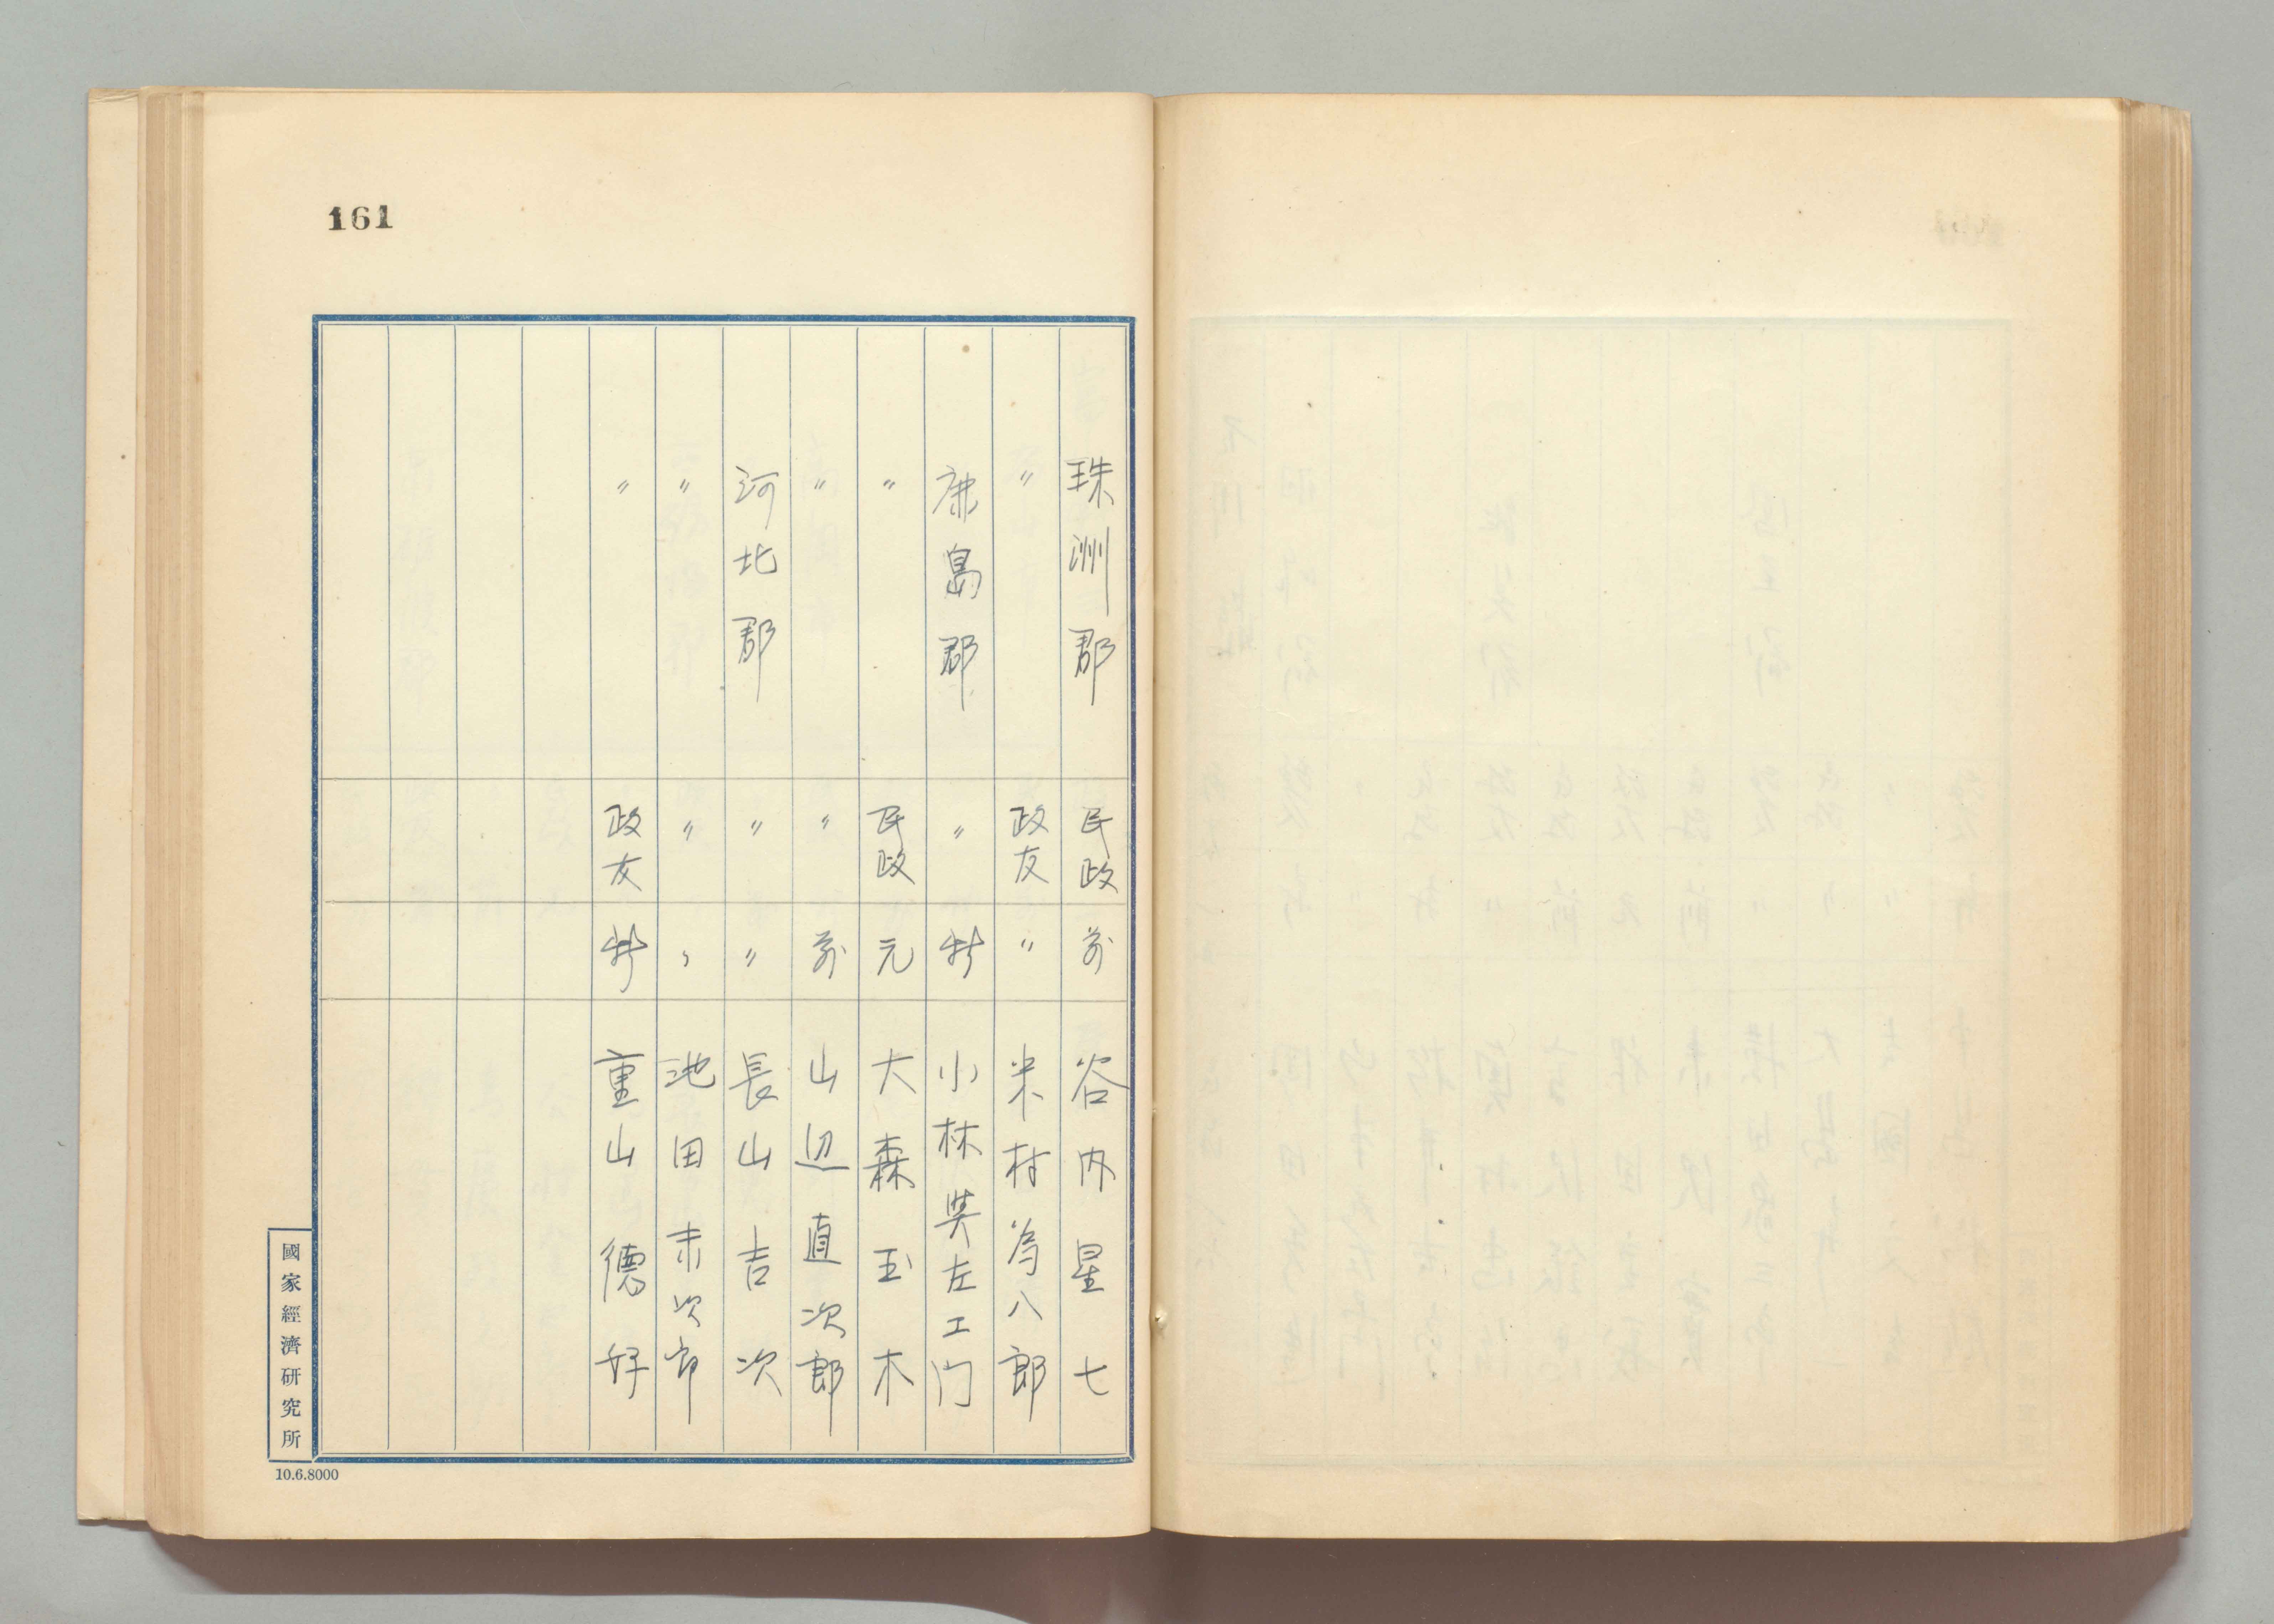 161
珠洲郡 民政 前 谷内星七
〃 政友 〃 米村為八郎
鹿島郡 〃 新 小林与左エ门
〃 民政 元 大森玉木
〃 〃 前 山辺直次郎
河北郡 〃 〃 長山吉次
〃 〃 〃 池田末次郎
〃 政友 新 重山德好
國家經濟研究所
10.6.8000